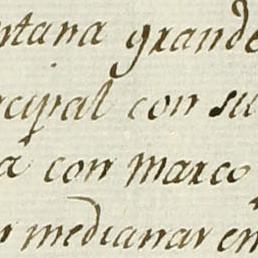 ntana grande
rcipal con su
a con marco
r medianar en